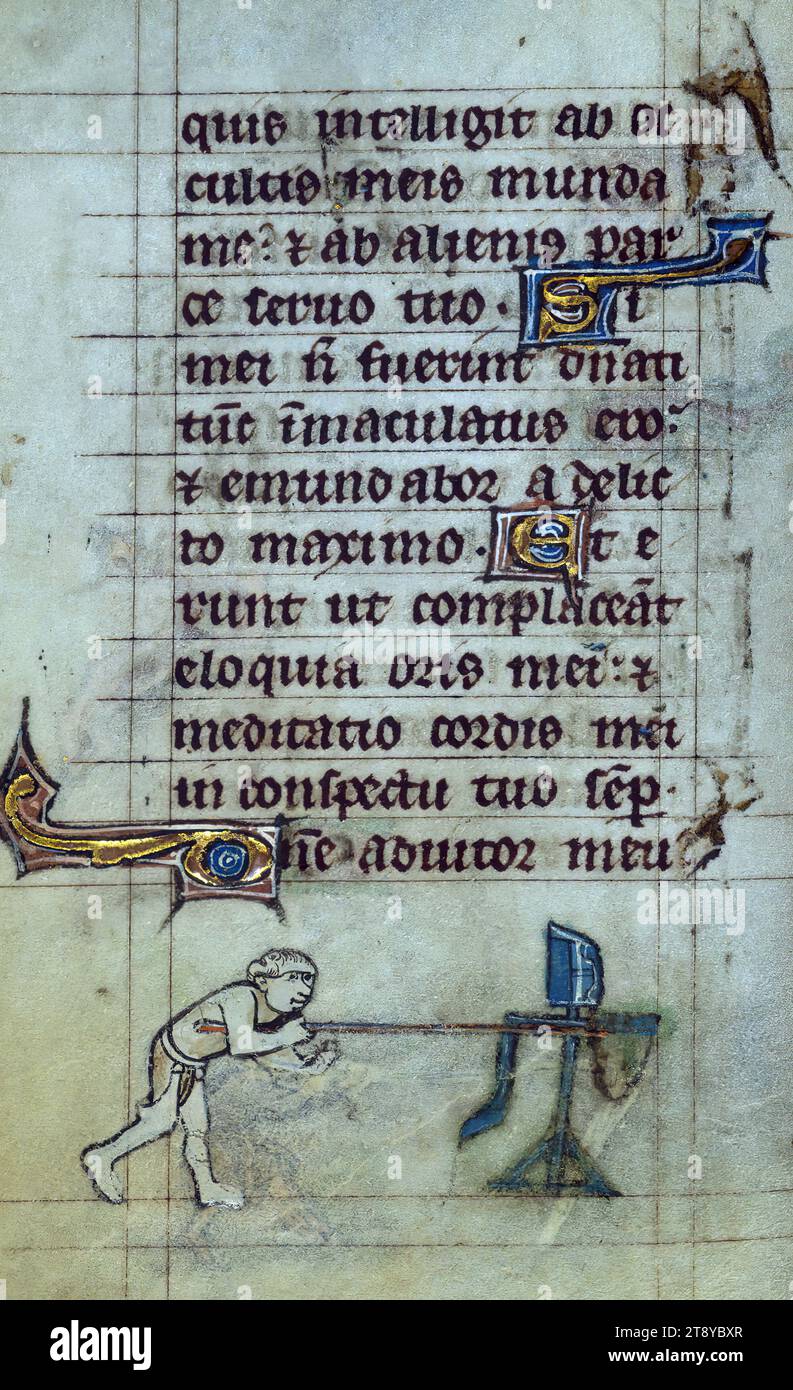 quis intelligit ab oc
cultis meis munda
me? & ab alienis par
ce seruo tuo. Si
mei n̄ fuerint dn̄ati
tūc īmaculatus ero:
& emundabor a delic
to maximo. Et e
runt ut complaceāt
eloquia oris mei: &
meditatio cordis mei
in conspectu tuo sēp.
Dn̄e adiutor meu
alamy
Image ID: 2T8YBXR
www.alamy.com